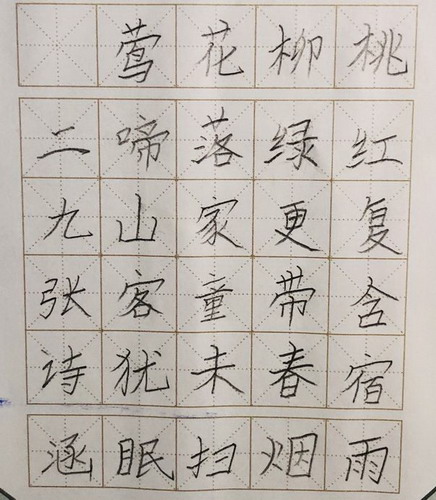 桃红复含宿雨
柳绿更带春烟
花落家童未扫
莺啼山客犹眠
二九张诗涵